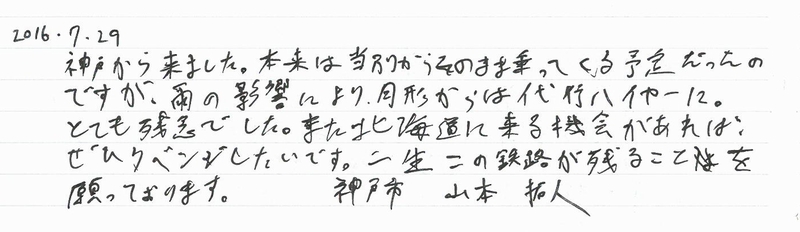 2016.7.29
神戸から来ました。本来は当別からそのまま乗ってくる予定だったの
ですが、雨の影響により、月形からは代行ハイヤーに。
とても残念でした。また北海道に乗る機会があれば、
ぜひリベンジしたいです。一生この鉄路が残ることを
願っております。 神戸市 山本 拓人